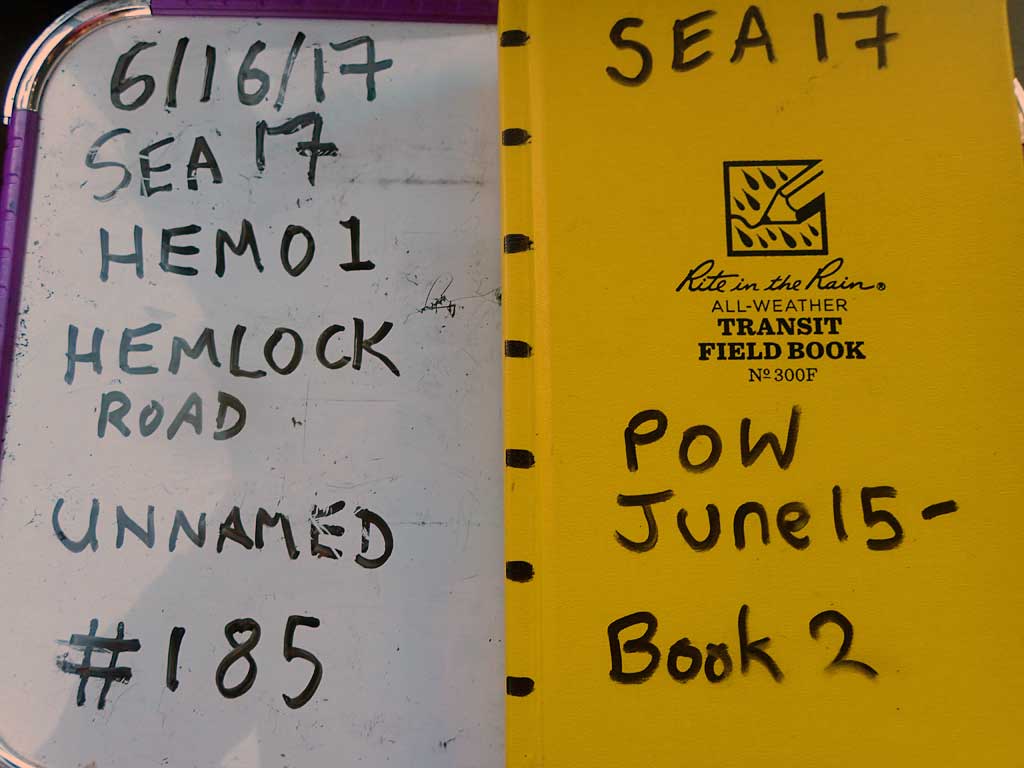 6/16/17
SEA 17
HEM01
HEMLOCK
ROAD
UNNAMED
#185
SEA 17
Rite in the Rain®
ALL-WEATHER
TRANSIT
FIELD BOOK
Nº 300F
POW
June 15-
Book 2